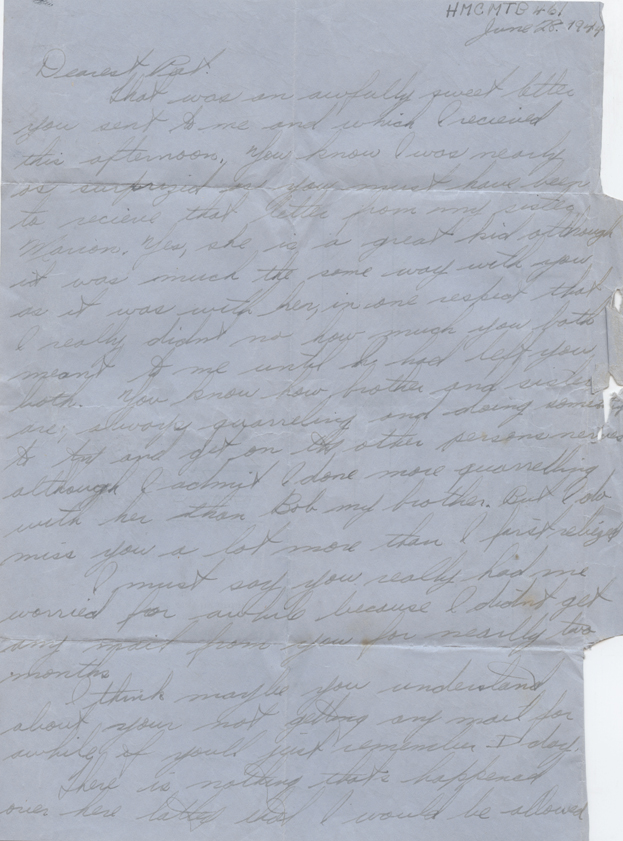 HMCMTB 461
June 28. 1944
Dearest Pat.
That was an awfully sweet letter
you sent to me and which I recieved
this afternoon. You know I was nearly
as surprized as you must have been
to recieve that letter from my sister
Marion. Yes, she is a great kid although
it was much the same way with you
as it was with her, in one respect that
I really didn't no how much you both
meant to me until I had left you
both. You know how brother and sister
are; always quarreling and doing something
to try and get on the other persons nerves
although I admit I done more quarrelling
with her than Bob my brother. But I do
miss you a lot more than I first
I must say you really had me
worried for awhile because I didn't get
any mail from you for nearly two
months.
I think maybe you understand
about your not getting any mail for
awhile, if you'll just remember D day.
There is nothing that's happened
over here that I would be allowed